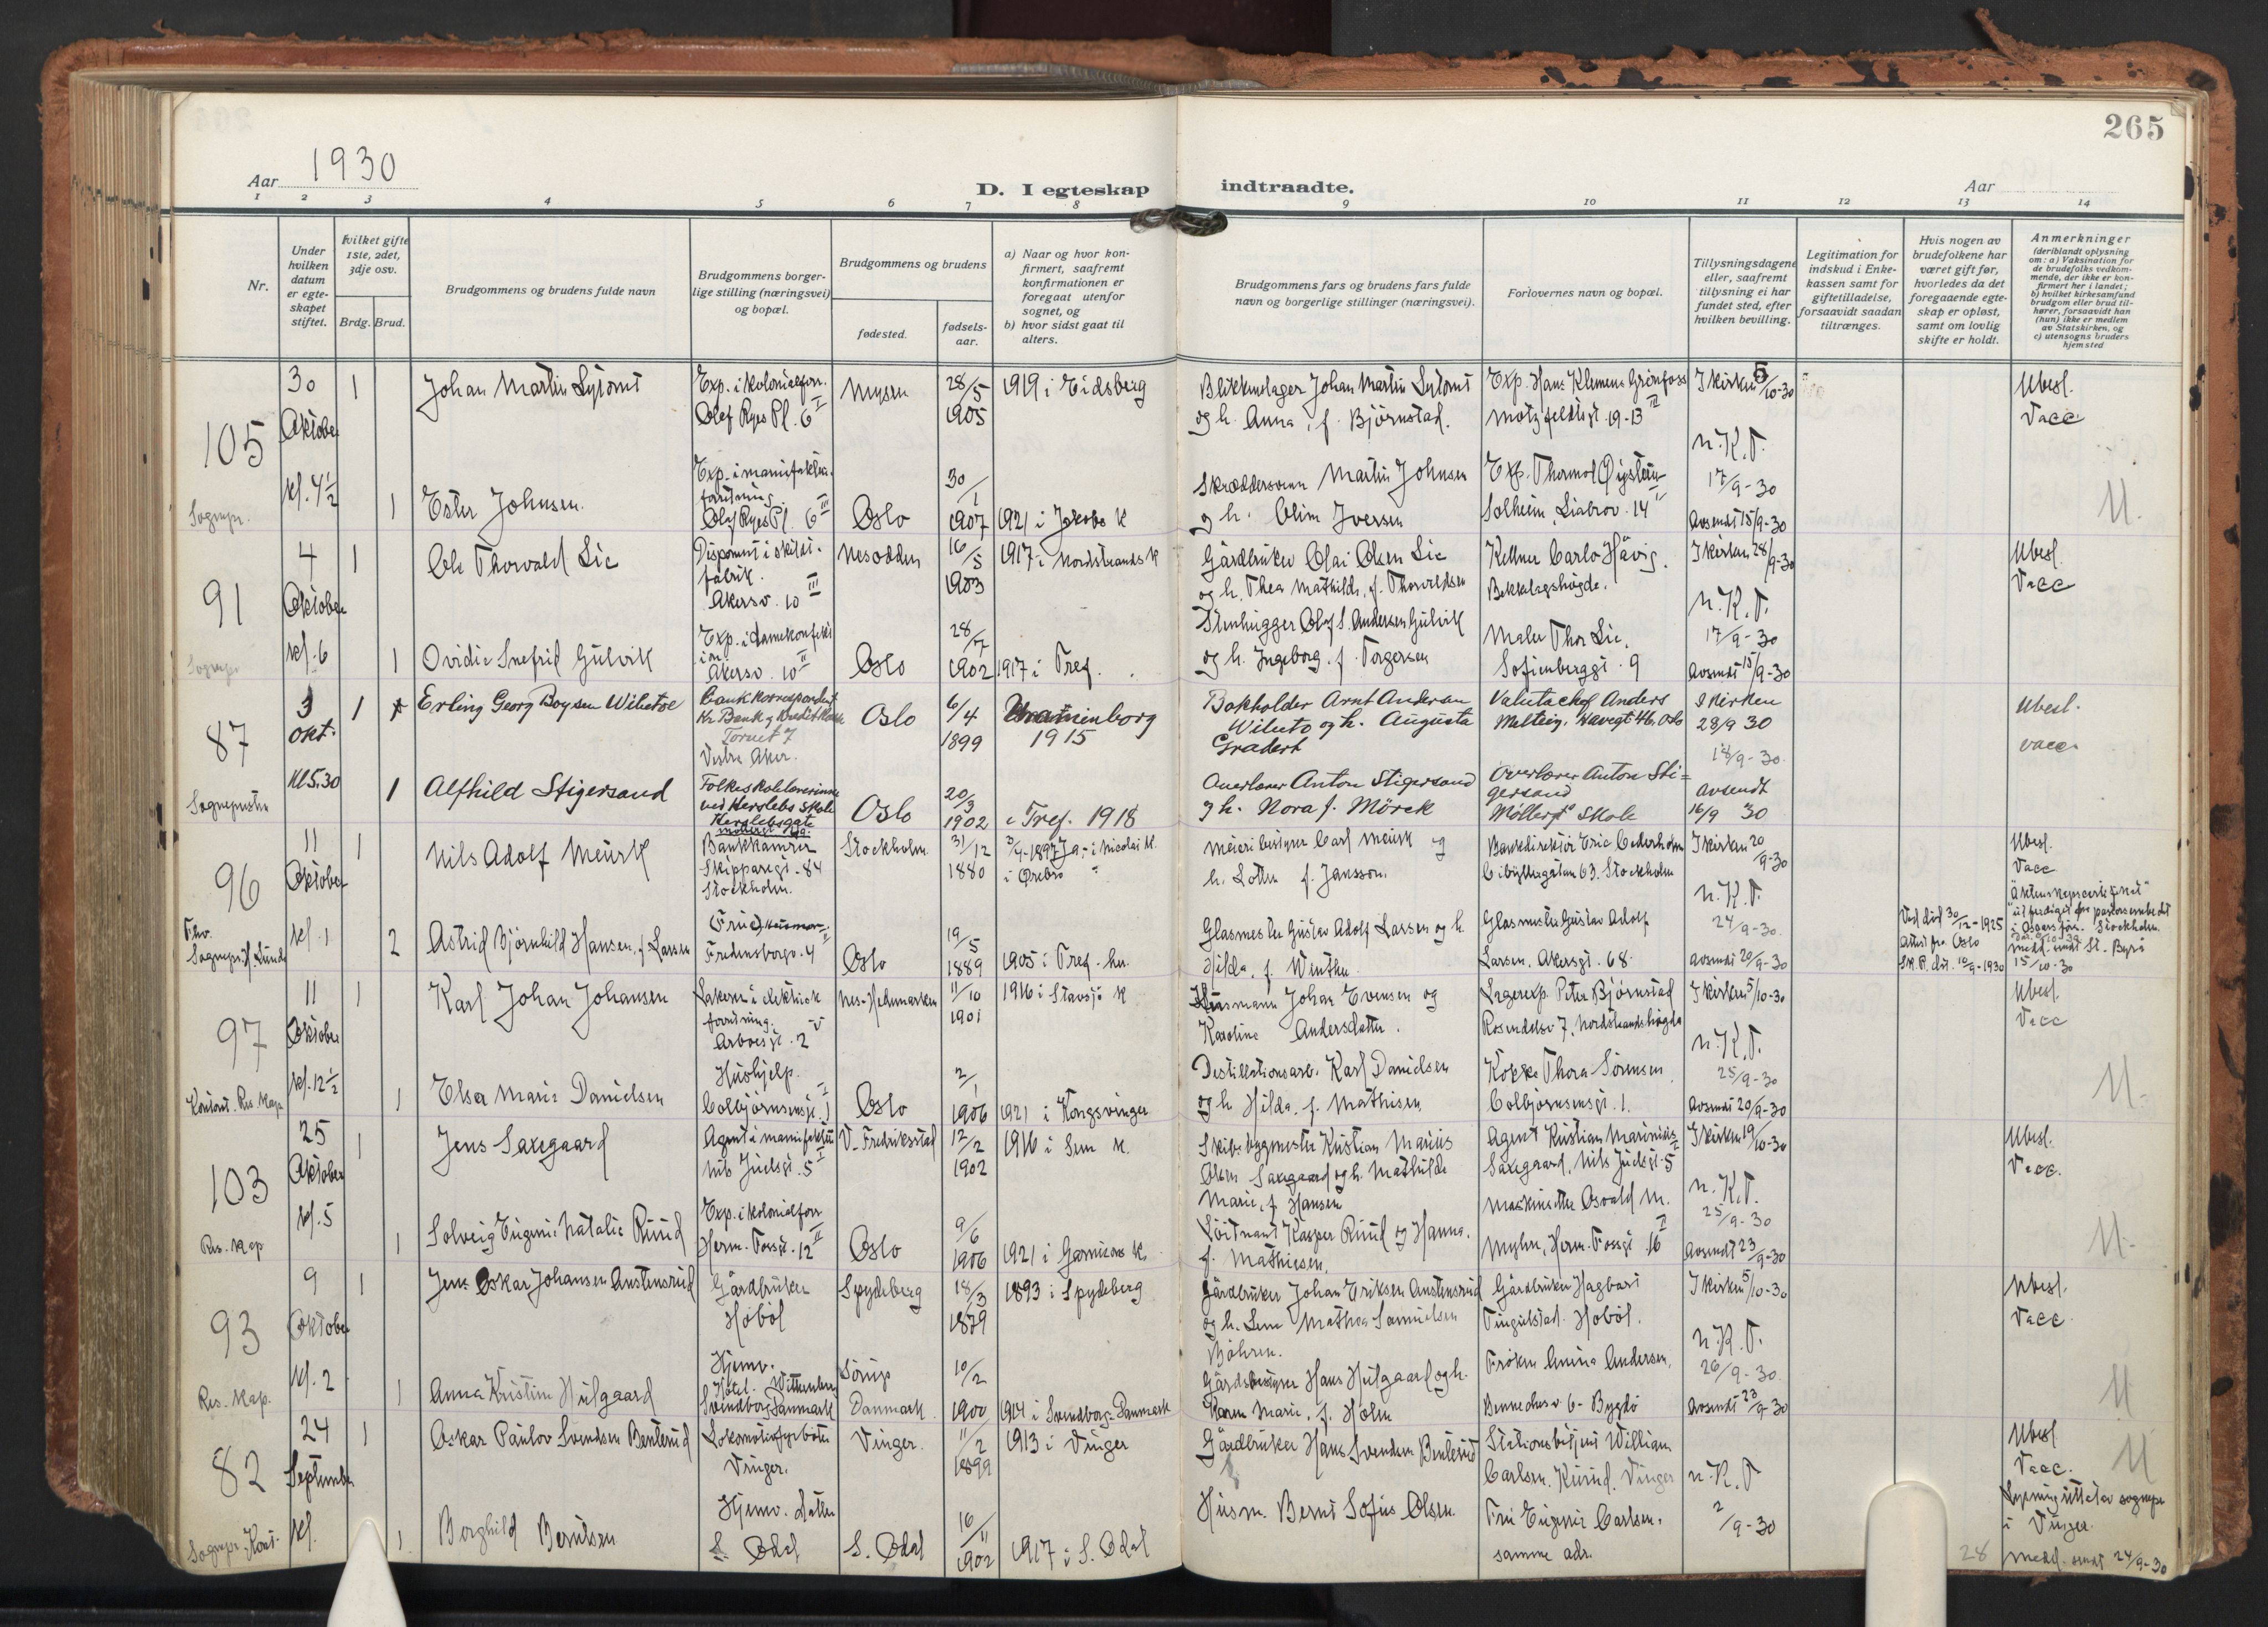 265
Aar 1930
D. I egteskap indtraadte.
Aar
1 2 3 4 5 6 7 8 9 10 11 12 13 14
Nr.
Under hvilken datum er egteskapet stiftet.
Hvilket gifte 1ste, 2det, 3dje osv.
Brdg. Brud.
Brudgommens og brudens fulde navn
Brudgommens borgerlige stilling (næringsvei) og bopæl.
Brudgommens og brudens
fødested.
fødselsaar.
a) Naar og hvor konfirmert, saafremt konfirmationen er foregaat utenfor sognet, og
b) hvor sidst gaat til alters.
Brudgommens fars og brudens fars fulde navn og borgerlige stillinger (næringsvei).
Forlovernes navn og bopæl.
Tillysningsdagene eller, saafremt tillysning ei har fundet sted, efter hvilken bevilling.
Legitimation for indskud i Enkekassen samt for giftetilladelse, forsaavidt saadan tiltrænges.
Hvis nogen av brudefolkene har været gift før, hvorledes da det foregaaende egteskap er opløst, samt om lovlig skifte er holdt.
Anmerkninger
(deriblandt oplysning om: a) Vaksination for de brudefolks vedkommende, der ikke er konfirmert her i landet; b) hvilket kirkesamfund brudgom eller brud tilhører, forsaavidt han (hun) ikke er medlem av Statskirken, og c) utensogns bruders hjemsted
105
30 Oktober kl. 4½
Sognepr.
1 Johan Martin
Exp. i kolonialforr. Olaf Ryes Pl. 6 I
Mysen 28/5 1905
1919 i Eidsberg
Blikkenslager Johan Martin
og h. Anna, f. Bjørnstad.
Exp. Hans Klemens Grönfoss
Motzfeldtsgt. 19-13 II
I kirken 5/10-30
n. K. T.
17/9-30
Avsendt 15/9-30
Ubesl.
Vacc
1 Ester Johnsen.
Exp. i manufaktur.
forretning
Olaf Ryes Pl. 6 III
Oslo 30/1 1907
1921 i Jakobs K
Skræddersvenn Martin Johnsen
og h. Oline Iversen
Exp. Thormod Øystein
Solheim, Liabrov. 14 II
91
4 Oktober kl. 6
Sognepr.
1 Ole Thorvald Lie
Disponent i skiltfabrik.
Akersv. 10 III
Nesodden 16/5 1903
1917 i Nordstrands K
Gårdbruker Olai Olsen Lie
og h. Thea Mathilde, f. Thorvaldsen
Kellner Carlo Hävig.
Bekkelagshögda.
I kirken 28/9-30
n. K. T.
17/9-30
Avsendt 15/9-30
Ubesl.
Vacc
1 Ovidie Snefrid Gulvik
Akersv. 10 II
Oslo 28/7 1902
1917 i Tref.
Stenhugger Olaf S. Andersen Gulvik
og h. Ingeborg, f. Torgersen
Maler Thor Lie.
Sofienberggt. 9
87
3 okt. Kl 5.30
1 Erling Georg Boysen
Bankkorrespondent
Kr. Bank og Kreditkasse
Toruet 7
Vestre Aker.
Oslo 6/4 1899
Uranienborg
1915
Bokholder Arnt Andersen
og h. Augusta
Valutachef Anders
I kirken
28/9 30
18/9-30.
avsendt
16/9 30
Ubesl.
vacc.
1 Alfhild Stigersand
Folkeskolelærerinne
ved Herslebs skole
Herslebsgate
Oslo 20/3 1902
i Tref. 1918
Overlærer Anton Stigersand
og h. Nora f. Mörck
Overlærer Anton Sti=
gersand
Möllergt. Skole
96
11 Oktober kl. 1
1 Nils Adolf Meurk
Bankkamrer
Skipparegt. 84
Stockholm.
Stockholm 31/12 1880
i Örebro
Meieribestyrer Carl Meurk og
h. Lotten f. Jansson.
Bankdirektör Eric Cederholm
63. Stockholm
I kirken 20/9-30
n. K. T.
24/9-30.
Avsendt 20/9-30
Ubesl.
Vacc
utferdiget fra pastorsembedet
i Oscars förs. Stockholm.
medd. sendt St. Byrå
15/10-30
2 Astrid Björnhild Hansen, f. Larsen
Fredensborgv. 4
Oslo 19/5 1889
1905 i Tref.
Glasmester Gustav Adolf Larsen og h.
Hilda, f. Winther
Glasmester Gustav Adolf
Larsen, Akersgt. 68.
Ved död 30/12-1925
Attest fra Oslo
Sk. R. dat. 10/9-1930
97
11 Oktober kl. 12½
Konst. Res. Kap.
1 Karl Johan Johansen
forretning.
Arboesgt. 2 V
Nes-Hedemarken 11/10 1901
1916 i Stavsjö K
Husmann Johan Evensen og
Karoline Andersdatter.
Lagerexp. Peter Björnstad
Rosendalsv 7, Nordstrandshögda
I kirken 5/10-30
n. K. T.
25/9-30
Avsendt 20/9-30
Ubesl.
Vacc
1 Elsa Marie Danielsen
Hushjelp.
Colbjörnsensgt. 1 I
Oslo 2/1 1906
1921 i Kongsvinger
Destillationsarb. Karl Danielsen
og h. Hilda, f. Mathisen
Kokke Thora Sörensen
Colbjörnsensgt. 1.
103
25 Oktober kl. 5
Res. Kap
1 Jens Saxegaard
Agent i manufaktur
Nils Juelsgt. 5 I
V. Fredrikstad 12/2 1902
1916 i Sem K.
Skibsbyggmester Kristian Marius
Olsen Saxegaard og h. Mathilde
Marie, f. Hansen
Agent Kristian Marinius
Saxegaard, Nils Juelsgt. 5 I
I kirken 19/10-30
n. K. T.
25/9-30
Avsendt 23/9-30
Ubesl.
Vacc.
1 Solveig Eugenie Natalie Ruud
Exp. i kolonialforr
Herm. Fossgt. 12 II
Oslo 9/6 1906
1921 i Garnisons K.
Löitnant Kasper Ruud og Hanna,
f. Mathiesen.
Maskinsetter Osvald M.
Myhre, Herm. Fossgt. 16 I
93
9 Oktober kl. 2
Res. Kap.
1 Jens Oskar Johansen Austensrud
Gårdbruker
Hoböl
Spydeberg 18/3 1879
1893 i Spydeberg
Gårdbruker Johan Eriksen Austensrud
og h. Lene Mathea Samuelsen
Gårdbruker Hagbart
Tingulstad. Hoböl.
I kirken 5/10-30
n. K. T.
26/9-30.
Avsendt 23/9-30
Ubesl.
Vacc.
1 Anna Kristine Hulgaard
Hjemv.
Svendborg Danmark
Sörup
Danmark 10/2 1900
1914 i Svendborg-Danmark
Gårdsbestyrer Hans Hulgaard og h.
Karen Marie, f. Holm
Fröken Anina Andersen,
Bennechesv 6- Bygdö
82
24 September kl.
1 Oskar Paulov Svendsen Benterud
Lokomotivfyrböter
Vinger.
Vinger. 11/2 1899
1913 i Vinger
Gårdbruker Hans Svendsen Benterud
Stationsbetjent William
Carlsen. Kurud. Vinger
n. K. T
2/9-30
Ubesl
Vacc.
Lysning uttatt av sognepr
i Vinger.
Medd. sendt 24/9-30
1 Borghild Berntsen
Hjemv. datter
S. Odal
S. Odal 16/11 1902
1917 i S. Odal
Husm. Bernt Sofus Olsen.
Fru Eugenie Carlsen.
samme adr.
28